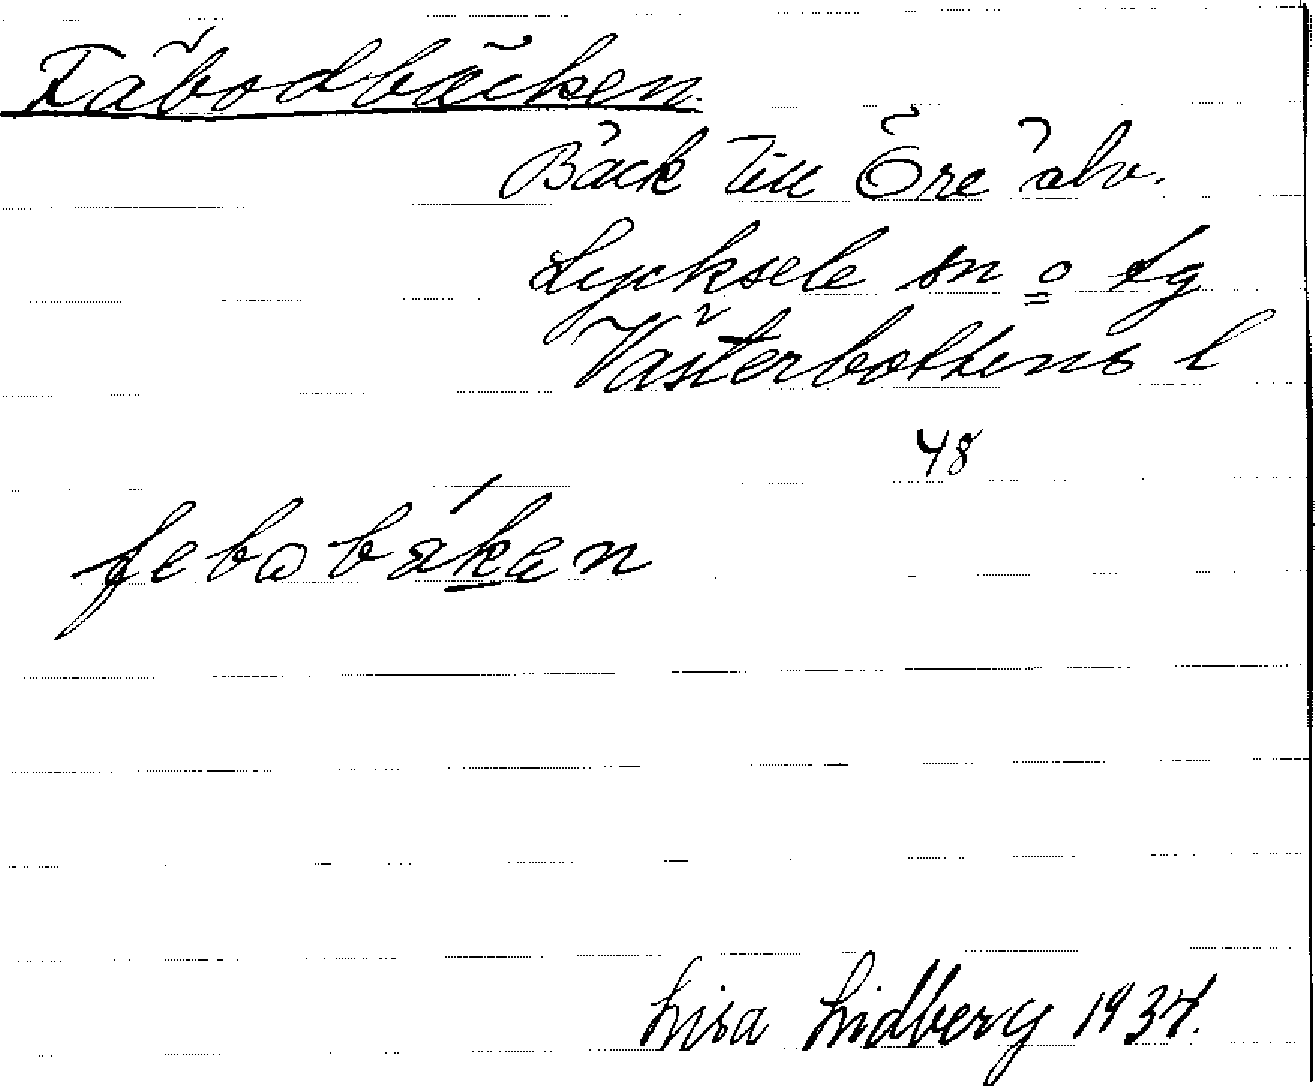 Fäbodbäcken
Bäck till Öre älv.
Lycksele sn o lg
Västerbottens l
48
febobäken
Lisa Lidberg 1937.